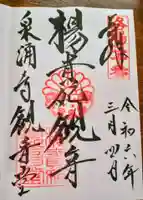 奉拝
令和六年
三月四日
楊貴妃観音
泉涌寺観音堂